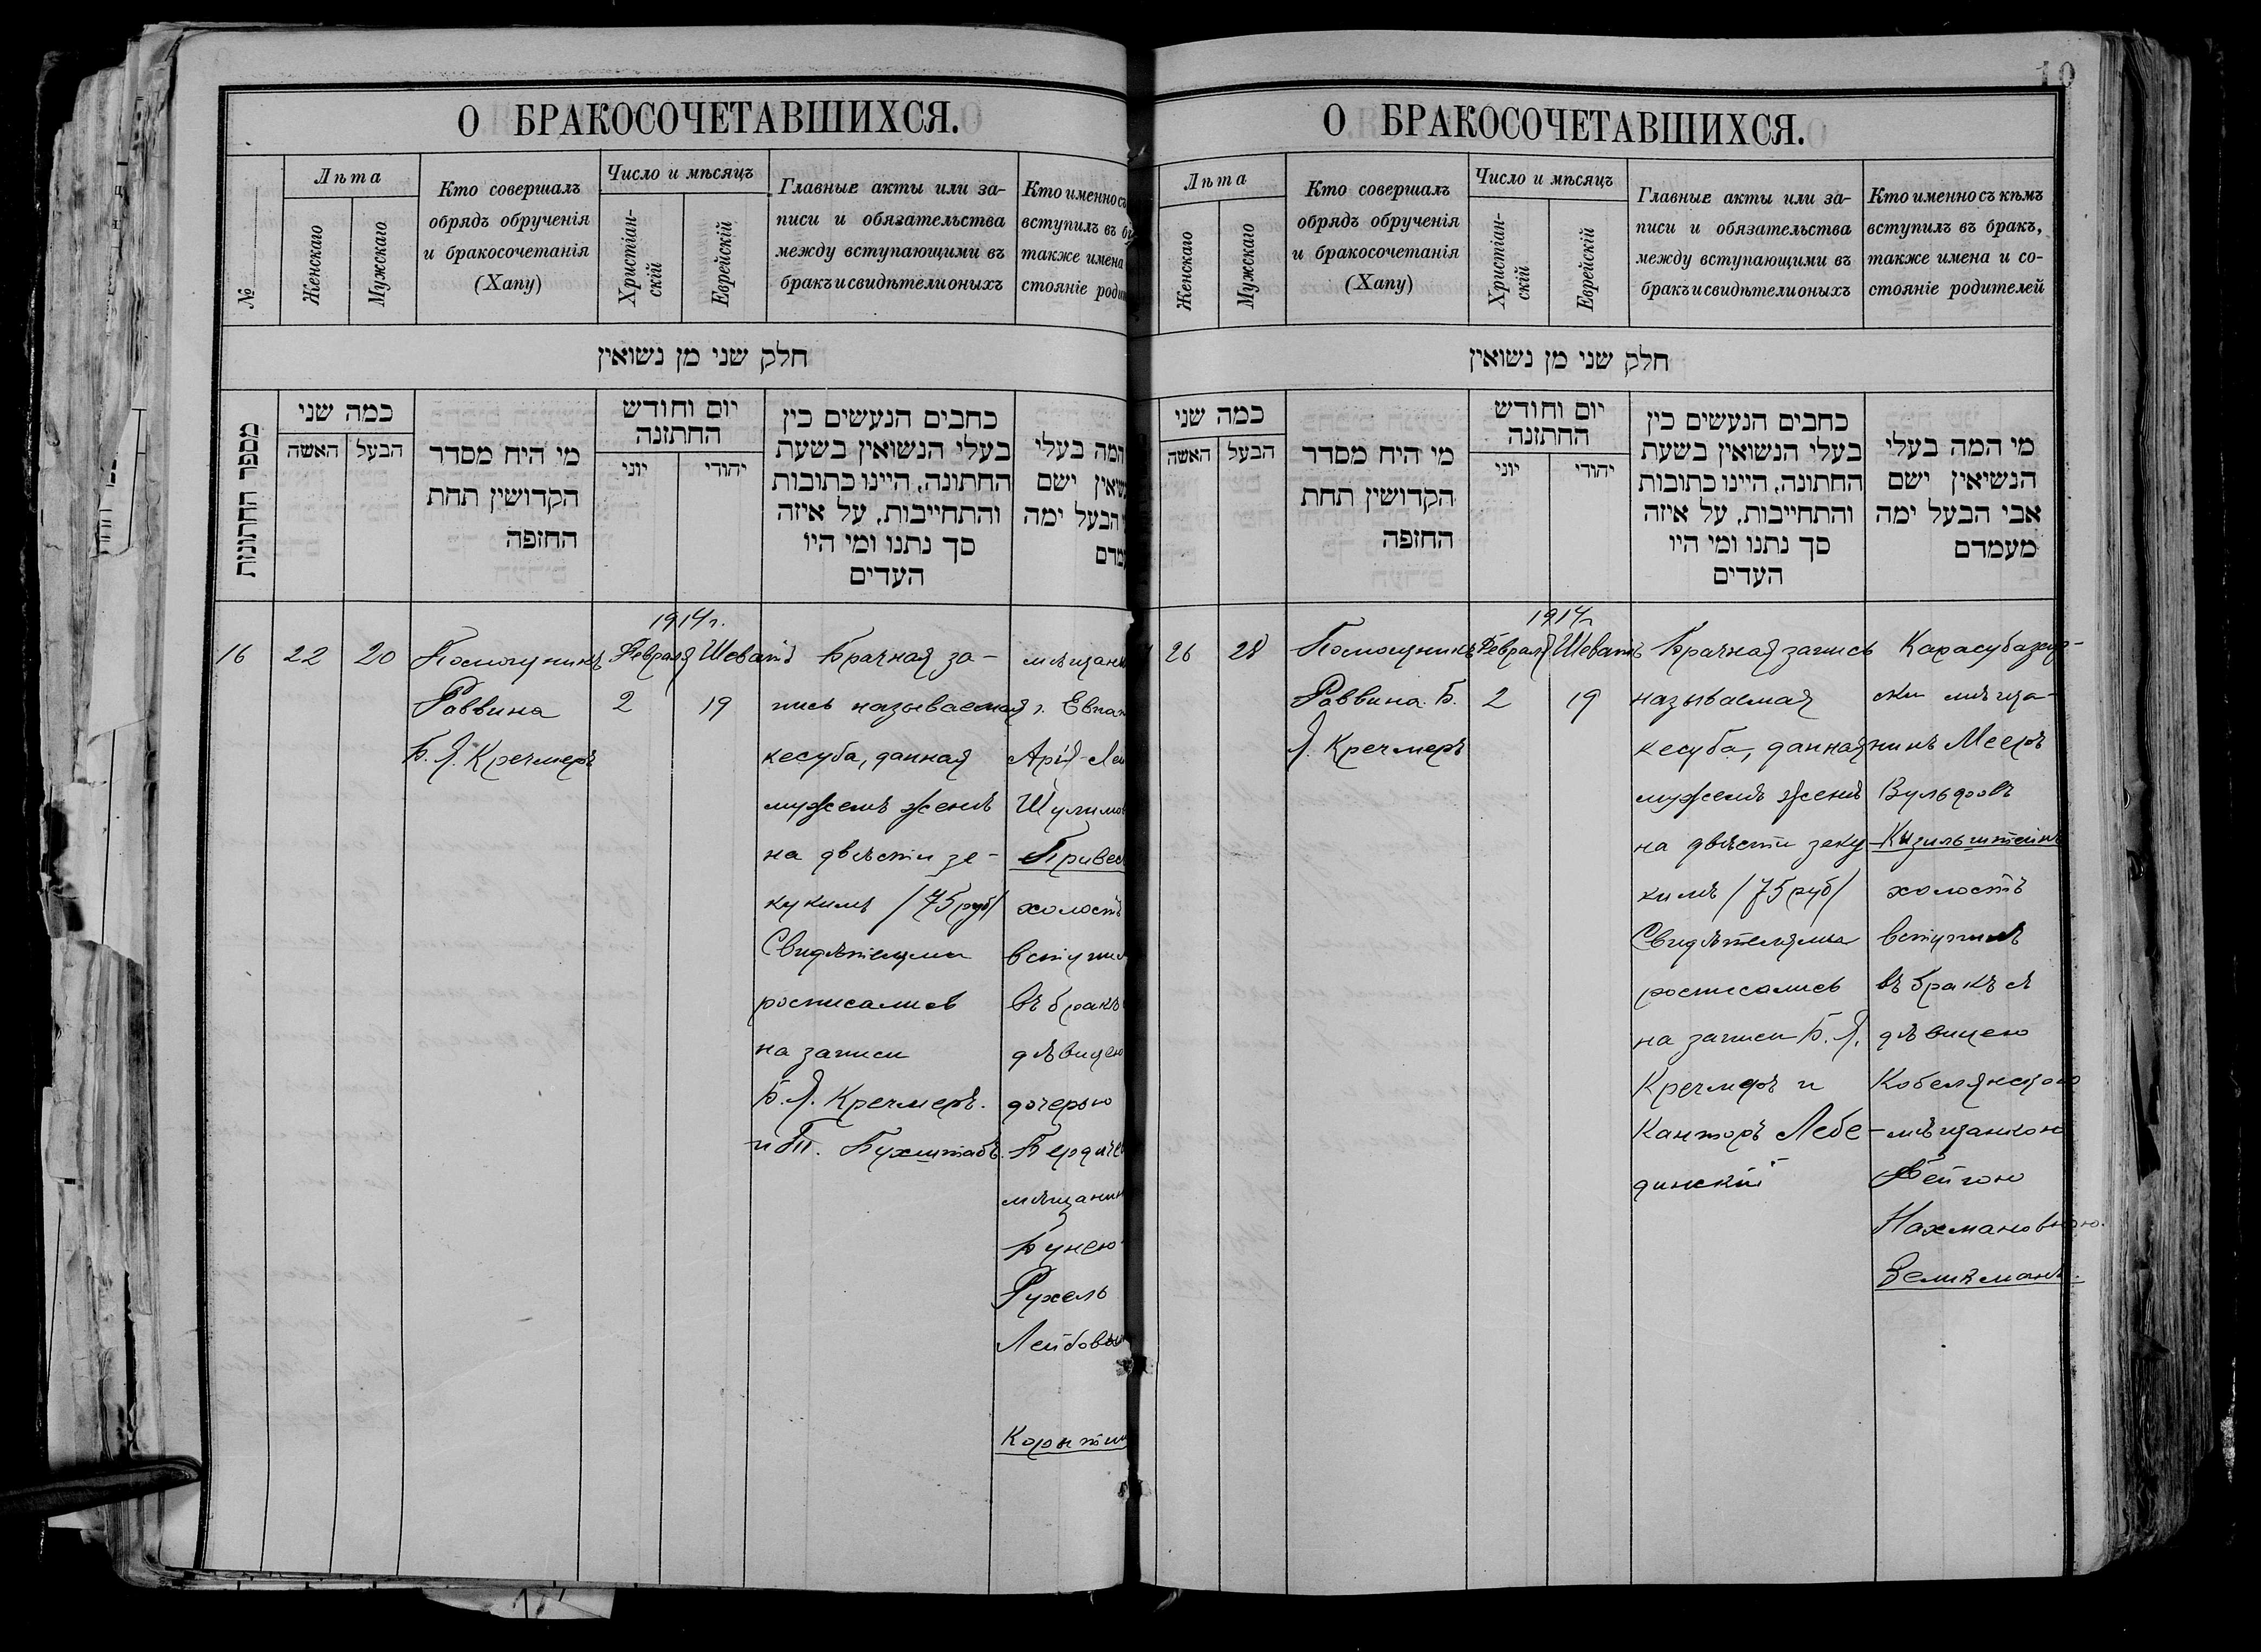 О БРАКОСОЧЕТАВШИХСЯ.
№
Лѣта
Женскаго
Мужскаго
Кто совершалъ
обрядъ обрученія
и бракосочетанія
(Хапу)
Число и мѣсяцъ
Христіан-
скій
Еврейскій
Главные акты или за-
писи и обязательства
между вступающими въ
бракъ и свидѣтели оныхъ
Кто именно съ
вступилъ въ б
также имена
стояніе роди
חלק שני מן נשואין
מספר החתונות
כמה שני
האשה
הבעל
מי היח מסדר
הקדושין תחת
החזפה
יום וחודש
החתזנה
יוני
יהודי
כחבים הנעשים כין
בעלי הנשואין בשעת
החתונה, היינו כתובות
והתחייבות, על איזה
סך נתנו ומי היו
העדים
המה בעלי
שאין ישם
הבעל ימה
מדם
1914г.
16
22
20
Помощникъ
Раввина
Б. Я. Кречмеръ
Февраля
2
Шеватъ
19
Брачная за-
пись называемая
кесуба, данная
мужемъ женѣ
на двѣсти зе-
кукимъ /75 руб/
Свидѣтелями
росписались
на записи
Б. Я. Кречмеръ.
и П. Бухштабъ.
мѣщани
г. Евпат
Арія-Лей
Шулимов
Привес
холостъ
вступил
въ бракъ
дѣвицею
дочерью
Бердичев
мѣщанин
Бунею-
Рухель
Лейбовн
Корнтин
10
О БРАКОСОЧЕТАВШИХСЯ.
Лѣта
Женскаго
Мужскаго
Кто совершалъ
обрядъ обрученія
и бракосочетанія
(Хапу)
Число и мѣсяцъ
Христіан-
скій
Еврейскій
Главные акты или за-
писи и обязательства
между вступающими въ
бракъ и свидѣтели оныхъ
Кто именно съ кѣмъ
вступилъ въ бракъ,
также имена и со-
стояніе родителей
חלק שני מן נשואין
כמה שני
האשה
הבעל
מי היח מסדר
הקדושין תחת
החזפה
יום וחודש
החתזנה
יוני
יהודי
כחבים הנעשים כין
בעלי הנשואין בשעת
החתונה, היינו כתובות
והתחייבות, על איזה
סך נתנו ומי היו
העדים
מי המה בעלי
הנשיאין ישם
אבי הבעל ימה
מעמדם
1914г
26
28
Помощникъ
Раввина Б.
Я. Кречмеръ
Февраля
2
Шеватъ
19
Брачная запись
называемая
кесуба, данная
мужемъ женѣ
на двѣсти зеку-
кимъ /75 руб/
Свидѣтелями
росписались
на записи Б. Я.
Кречмеръ и
Канторъ Лебе-
динскій
Карасубазар-
ски мѣща-
нинъ Мееръ
Вульфовъ
Кизильштейнъ
холостъ
вступилъ
въ бракъ съ
дѣвицею
Кобелянскою
мѣщанкою
Фейгою
Нахмановною.
Зеликманъ.